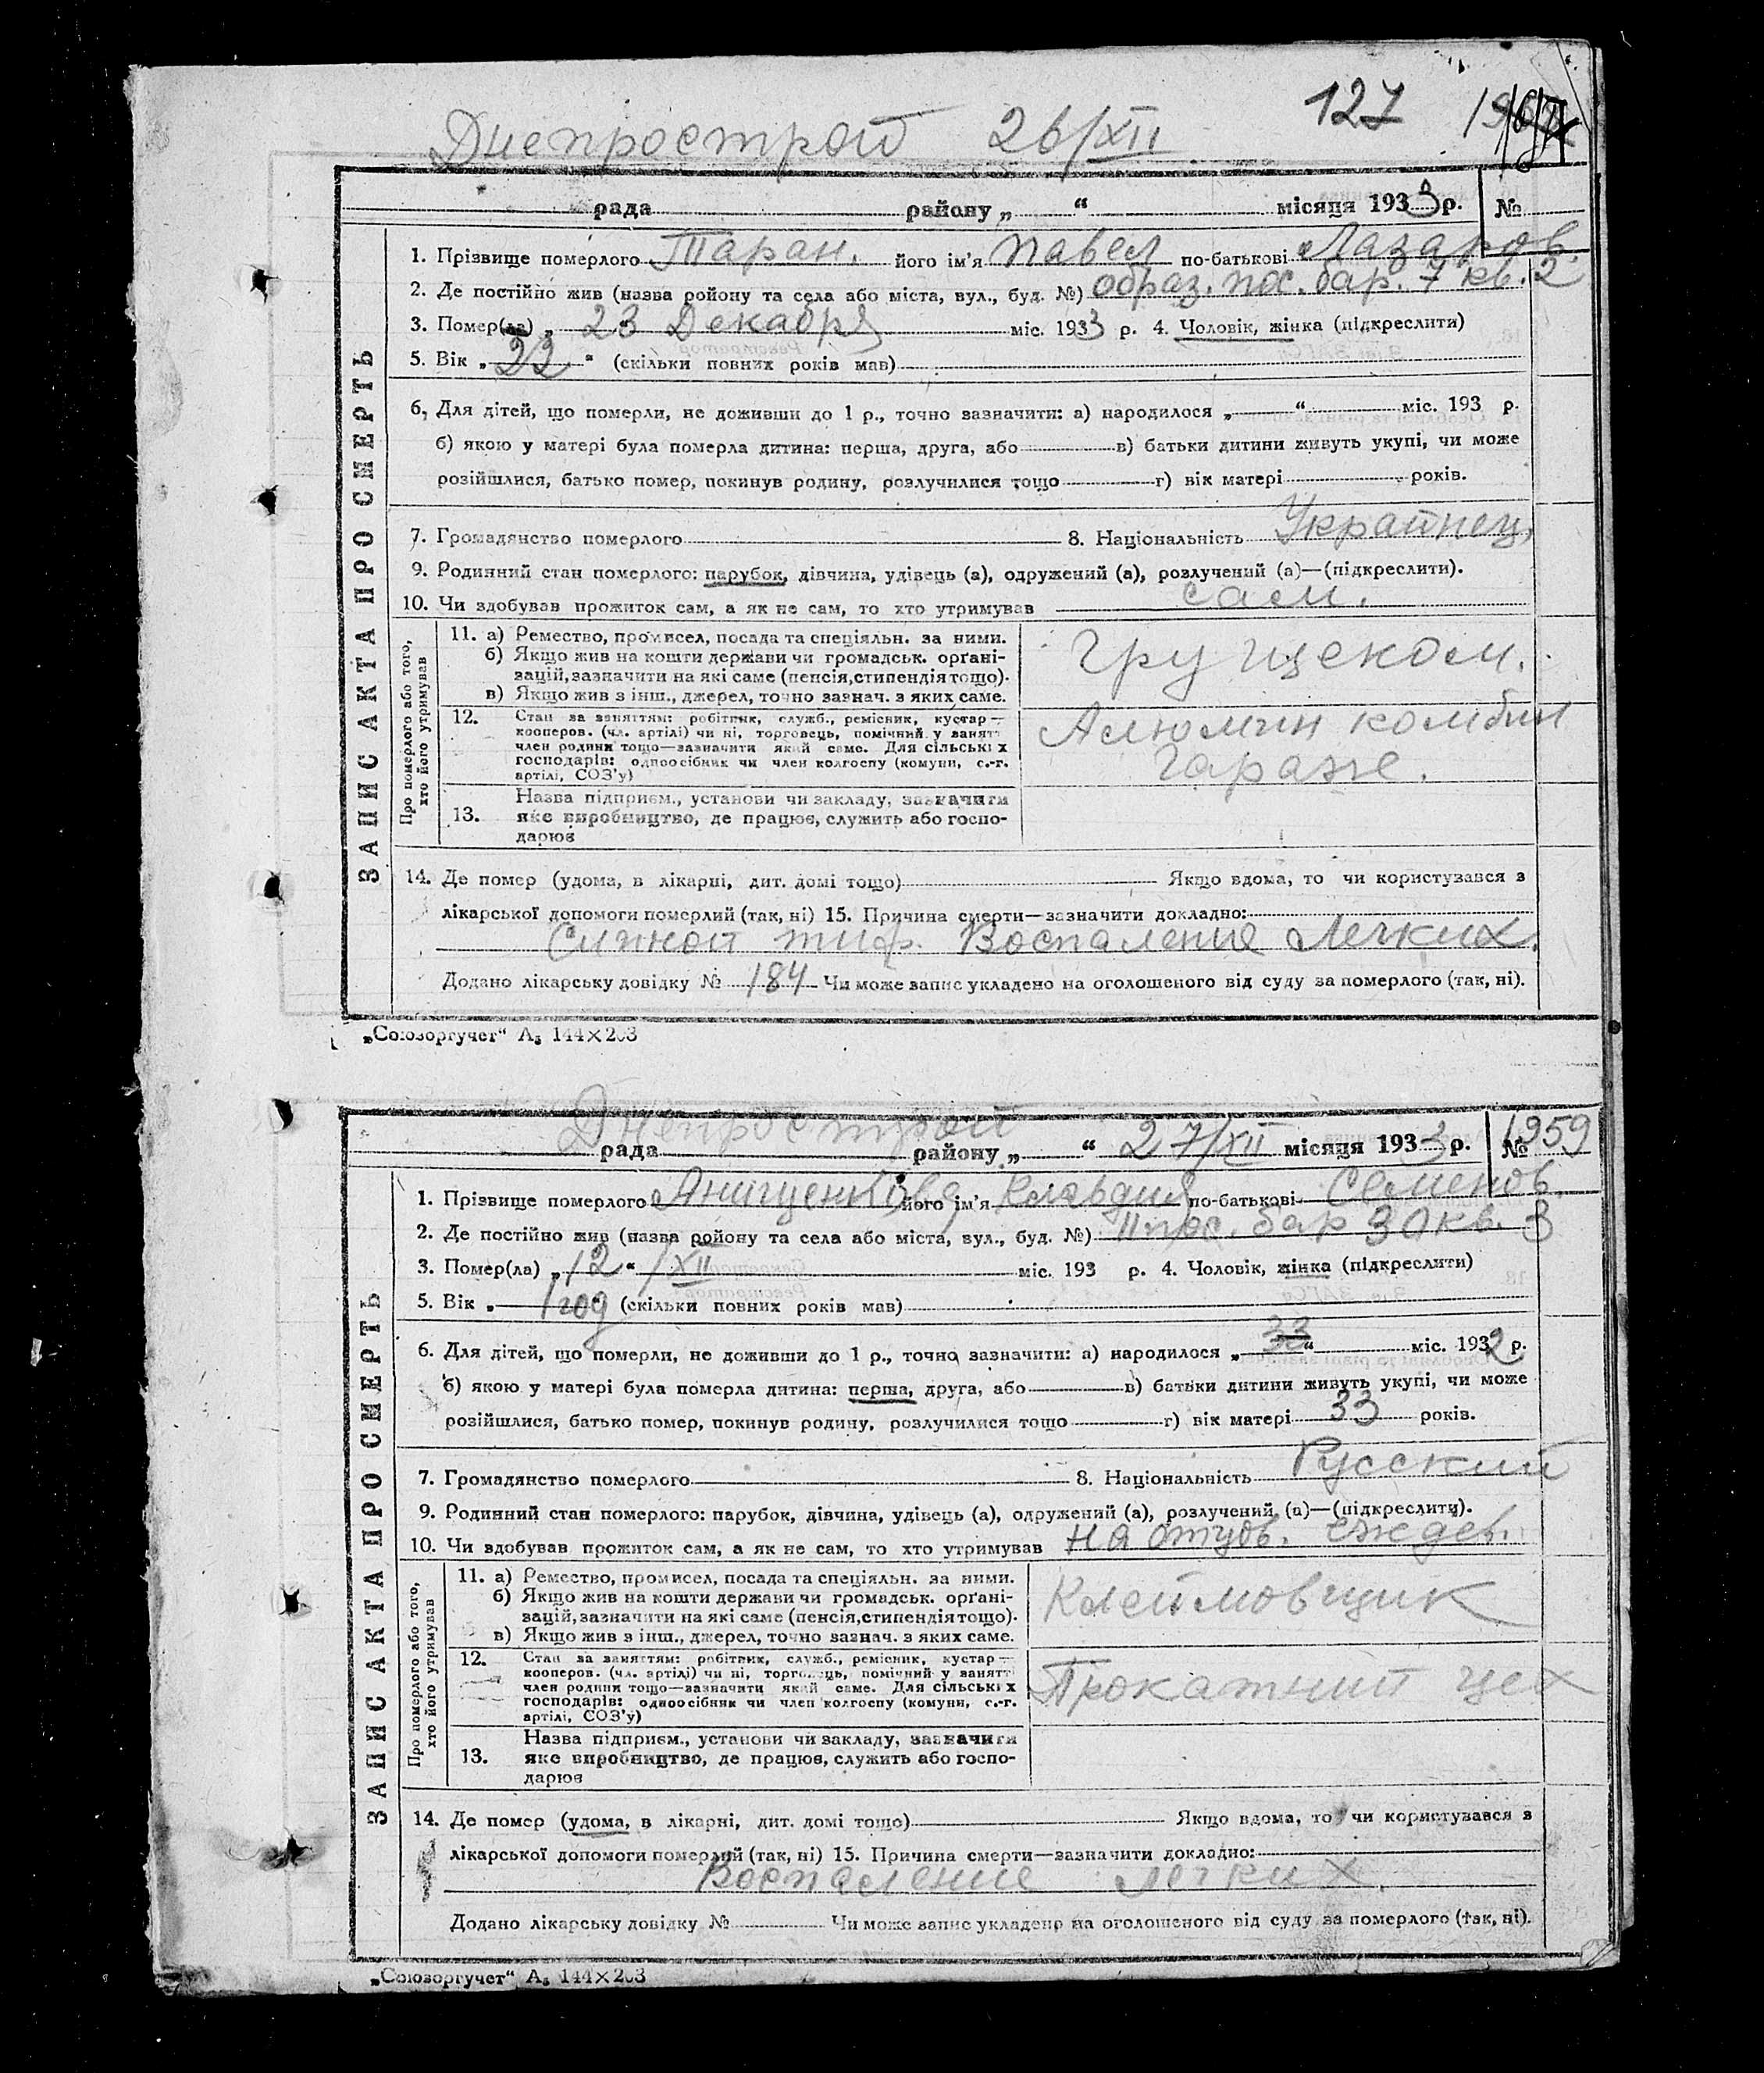 127
Днепрострой 26/XII
рада району „ “ місяця 1933 р. №
1. Прізвище померлого Таран. його ім'я Павел по-батькові Лазаров.
2. Де постійно жив (назва району та села або міста, вул., буд. №) образ. пос. бар. 7 кв. 2
3. Помер(ла) „ 23 Декабря міс. 1933 р. 4. Чоловік, жінка (підкреслити)
5. Вік „ 22 “ (скільки повних років мав)
6. Для дітей, що померли, не доживши до 1 р., точно зазначити: а) народилося „ “ міс. 193 р.
б) якою у матері була померла дитина: перша, друга, або в) батьки дитини живуть укупі, чи може
розійшлися, батько помер, покинув родину, розлучилися тощо г) вік матері років.
7. Громадянство померлого 8. Національність Украинец,
9. Родинний стан померлого: парубок, дівчина, удівець (а), одружений (а), розлучений (а)—(підкреслити).
10. Чи здобував прожиток сам, а як не сам, то хто утримував сам.
ЗАПИС АКТА ПРО СМЕРТЬ
Про померлого або того,
хто його утримував
11. а) Ремество, промисел, посада та спеціяльн. за ними.
б) Якщо жив на кошти держави чи громадськ. орґані-
зацій, зазначити на які саме (пенсія, стипендія тощо).
в) Якщо жив з інш., джерел, точно зазнач. з яких саме.
12. Стан за заняттям: робітник, служб., ремісник, кустар—
кооперов. (чл. артілі) чи ні, торговець, помічний у занятт
член родини тощо—зазначити який саме. Для сільських
господарів: одноосібник чи член колгоспу (комуни, с.-г.
артілі, СОЗ'у)
Алюмин комбин
гараже.
Назва підприєм., установи чи закладу, зазначити
13. яке виробництво, де працює, служить або госпо-
дарює
14. Де помер (удома, в лікарні, дит. домі тощо) Якщо вдома, то чи користувався з
лікарської допомоги померлий (так, ні) 15. Причина смерти—зазначити докладно:
Сыпной тиф. Воспаление Легких.
Додано лікарську довідку № 184 Чи може запис укладено на оголошеного від суду за померлого (так, ні).
„Союзоргучет“ А₅ 144×203
Днепрострой
рада району „ “ 27/XII місяця 1933 р. № 1959
1. Прізвище померлого Анищенкова його ім'я Клавдия по-батькові Семенов.
2. Де постійно жив (назва району та села або міста, вул., буд. №) II пос. бар 30 кв. 3
3. Помер(ла) „ 12 “ /XII міс. 193 р. 4. Чоловік, жінка (підкреслити)
5. Вік „ 1 год (скільки повних років мав)
6. Для дітей, що померли, не доживши до 1 р., точно зазначити: а) народилося „ 33 “ міс. 1932 р.
б) якою у матері була померла дитина: перша, друга, або в) батьки дитини живуть укупі, чи може
розійшлися, батько помер, покинув родину, розлучилися тощо г) вік матері 33 років.
7. Громадянство померлого 8. Національність Русский
9. Родинний стан померлого: парубок, дівчина, удівець (а), одружений (а), розлучений (а)—(підкреслити).
10. Чи здобував прожиток сам, а як не сам, то хто утримував на отцов. иждев.
ЗАПИС АКТА ПРО СМЕРТЬ
Про померлого або того,
хто його утримував
11. а) Ремество, промисел, посада та спеціяльн. за ними.
б) Якщо жив на кошти держави чи громадськ. орґані-
зацій, зазначити на які саме (пенсія, стипендія тощо).
в) Якщо жив з інш., джерел, точно зазнач. з яких саме.
Клеймовщик
12. Стан за заняттям: робітник, служб., ремісник, кустар—
кооперов. (чл. артілі) чи ні, торговець, помічний у занятт
член родини тощо—зазначити який саме. Для сільських
господарів: одноосібник чи член колгоспу (комуни, с.-г.
артілі, СОЗ'у)
Прокатний цех
Назва підприєм., установи чи закладу, зазначити
13. яке виробництво, де працює, служить або госпо-
дарює
14. Де помер (удома, в лікарні, дит. домі тощо) Якщо вдома, то чи користувався з
лікарської допомоги померлий (так, ні) 15. Причина смерти—зазначити докладно:
Воспаление легких.
Додано лікарську довідку № Чи може запис укладено на оголошеного від суду за померлого (так, ні).
„Союзоргучет“ А₅ 144×203